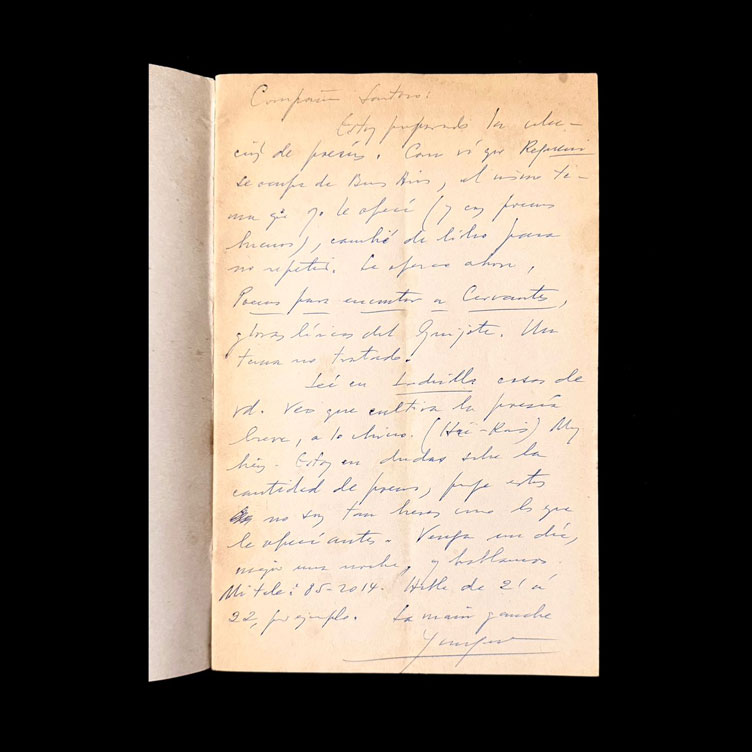 Compañ Santoro:
Estoy preparando la colec-
ción de poesías. Como vi que
se ocupa de Bues Aires, el mismo te-
ma que yo le ofrecí (y con poemas
buenos), cambié de libro para
no repetir. Le ofrezco ahora,
Poemas para encontrar a Cervantes,
glosas líricas del Quijote. Un
tema no tratado.
Leí en cosas de
vd. Veo que cultiva la poesía
breve, a lo chino. (Hai-Kais) Muy
bien. Estoy en dudas sobre la
cantidad de poemas, pues estos
no son tan breves como los que
le ofrecí antes. Venga un día,
mejor una noche, y hablamos.
Mi tele: 85-2014. Hable de 21 a
22, por ejemplo. La main gauche